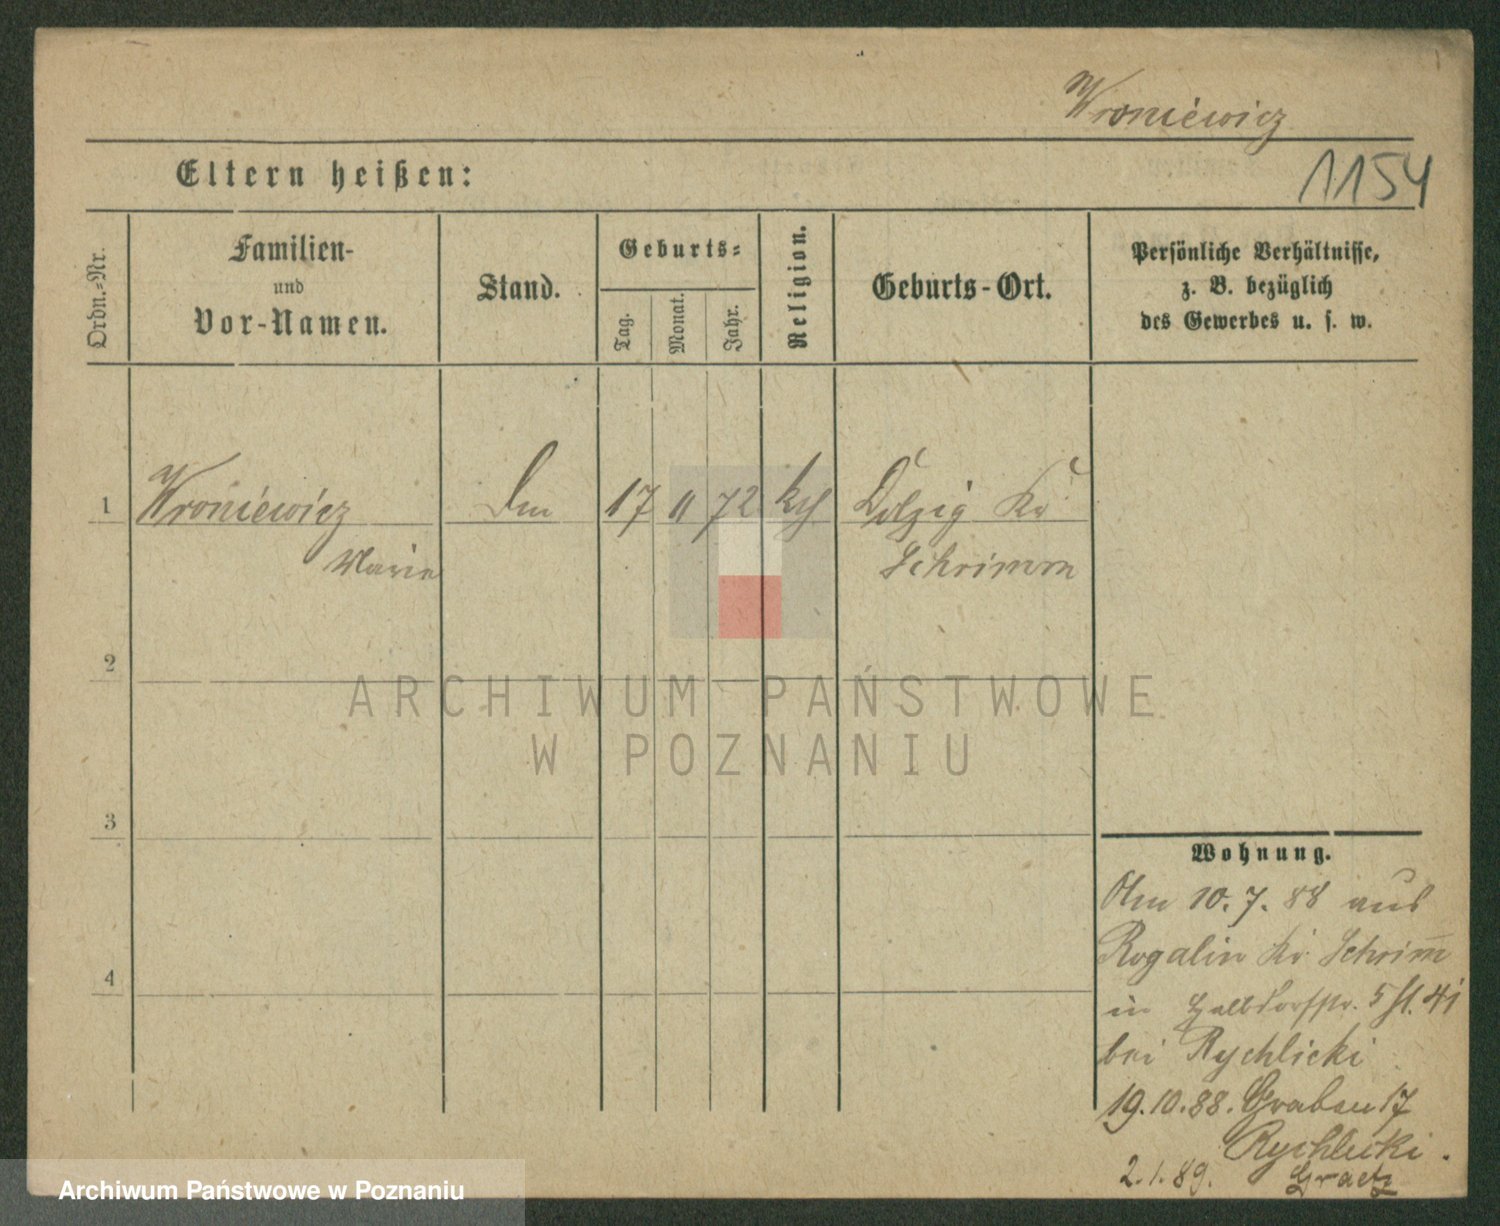 Wroniewicz
1154
Eltern heißen:
Ordn.-Nr.
Familien-
und
Vor-Namen.
Stand.
Geburts-
Tag.
Monat.
Jahr.
Religion.
Geburts-Ort.
Persönliche Verhältnisse,
z. B. bezüglich
des Gewerbes u. s. w.
1 Wroniewicz 17 11 72 kth Dolzig Kr
Marie Schrimm
2
ARCHIWUM PAŃSTWOWE
W POZNANIU
3
4
Wohnung.
Am 10.7.88 aus
Rogalin Kr Schrim̅
in Halbdorfstr. 5
bei Rychlicki
19.10.88. Graben 17
Rychlicki.
2.1.89. Graetz
Archiwum Państwowe w Poznaniu